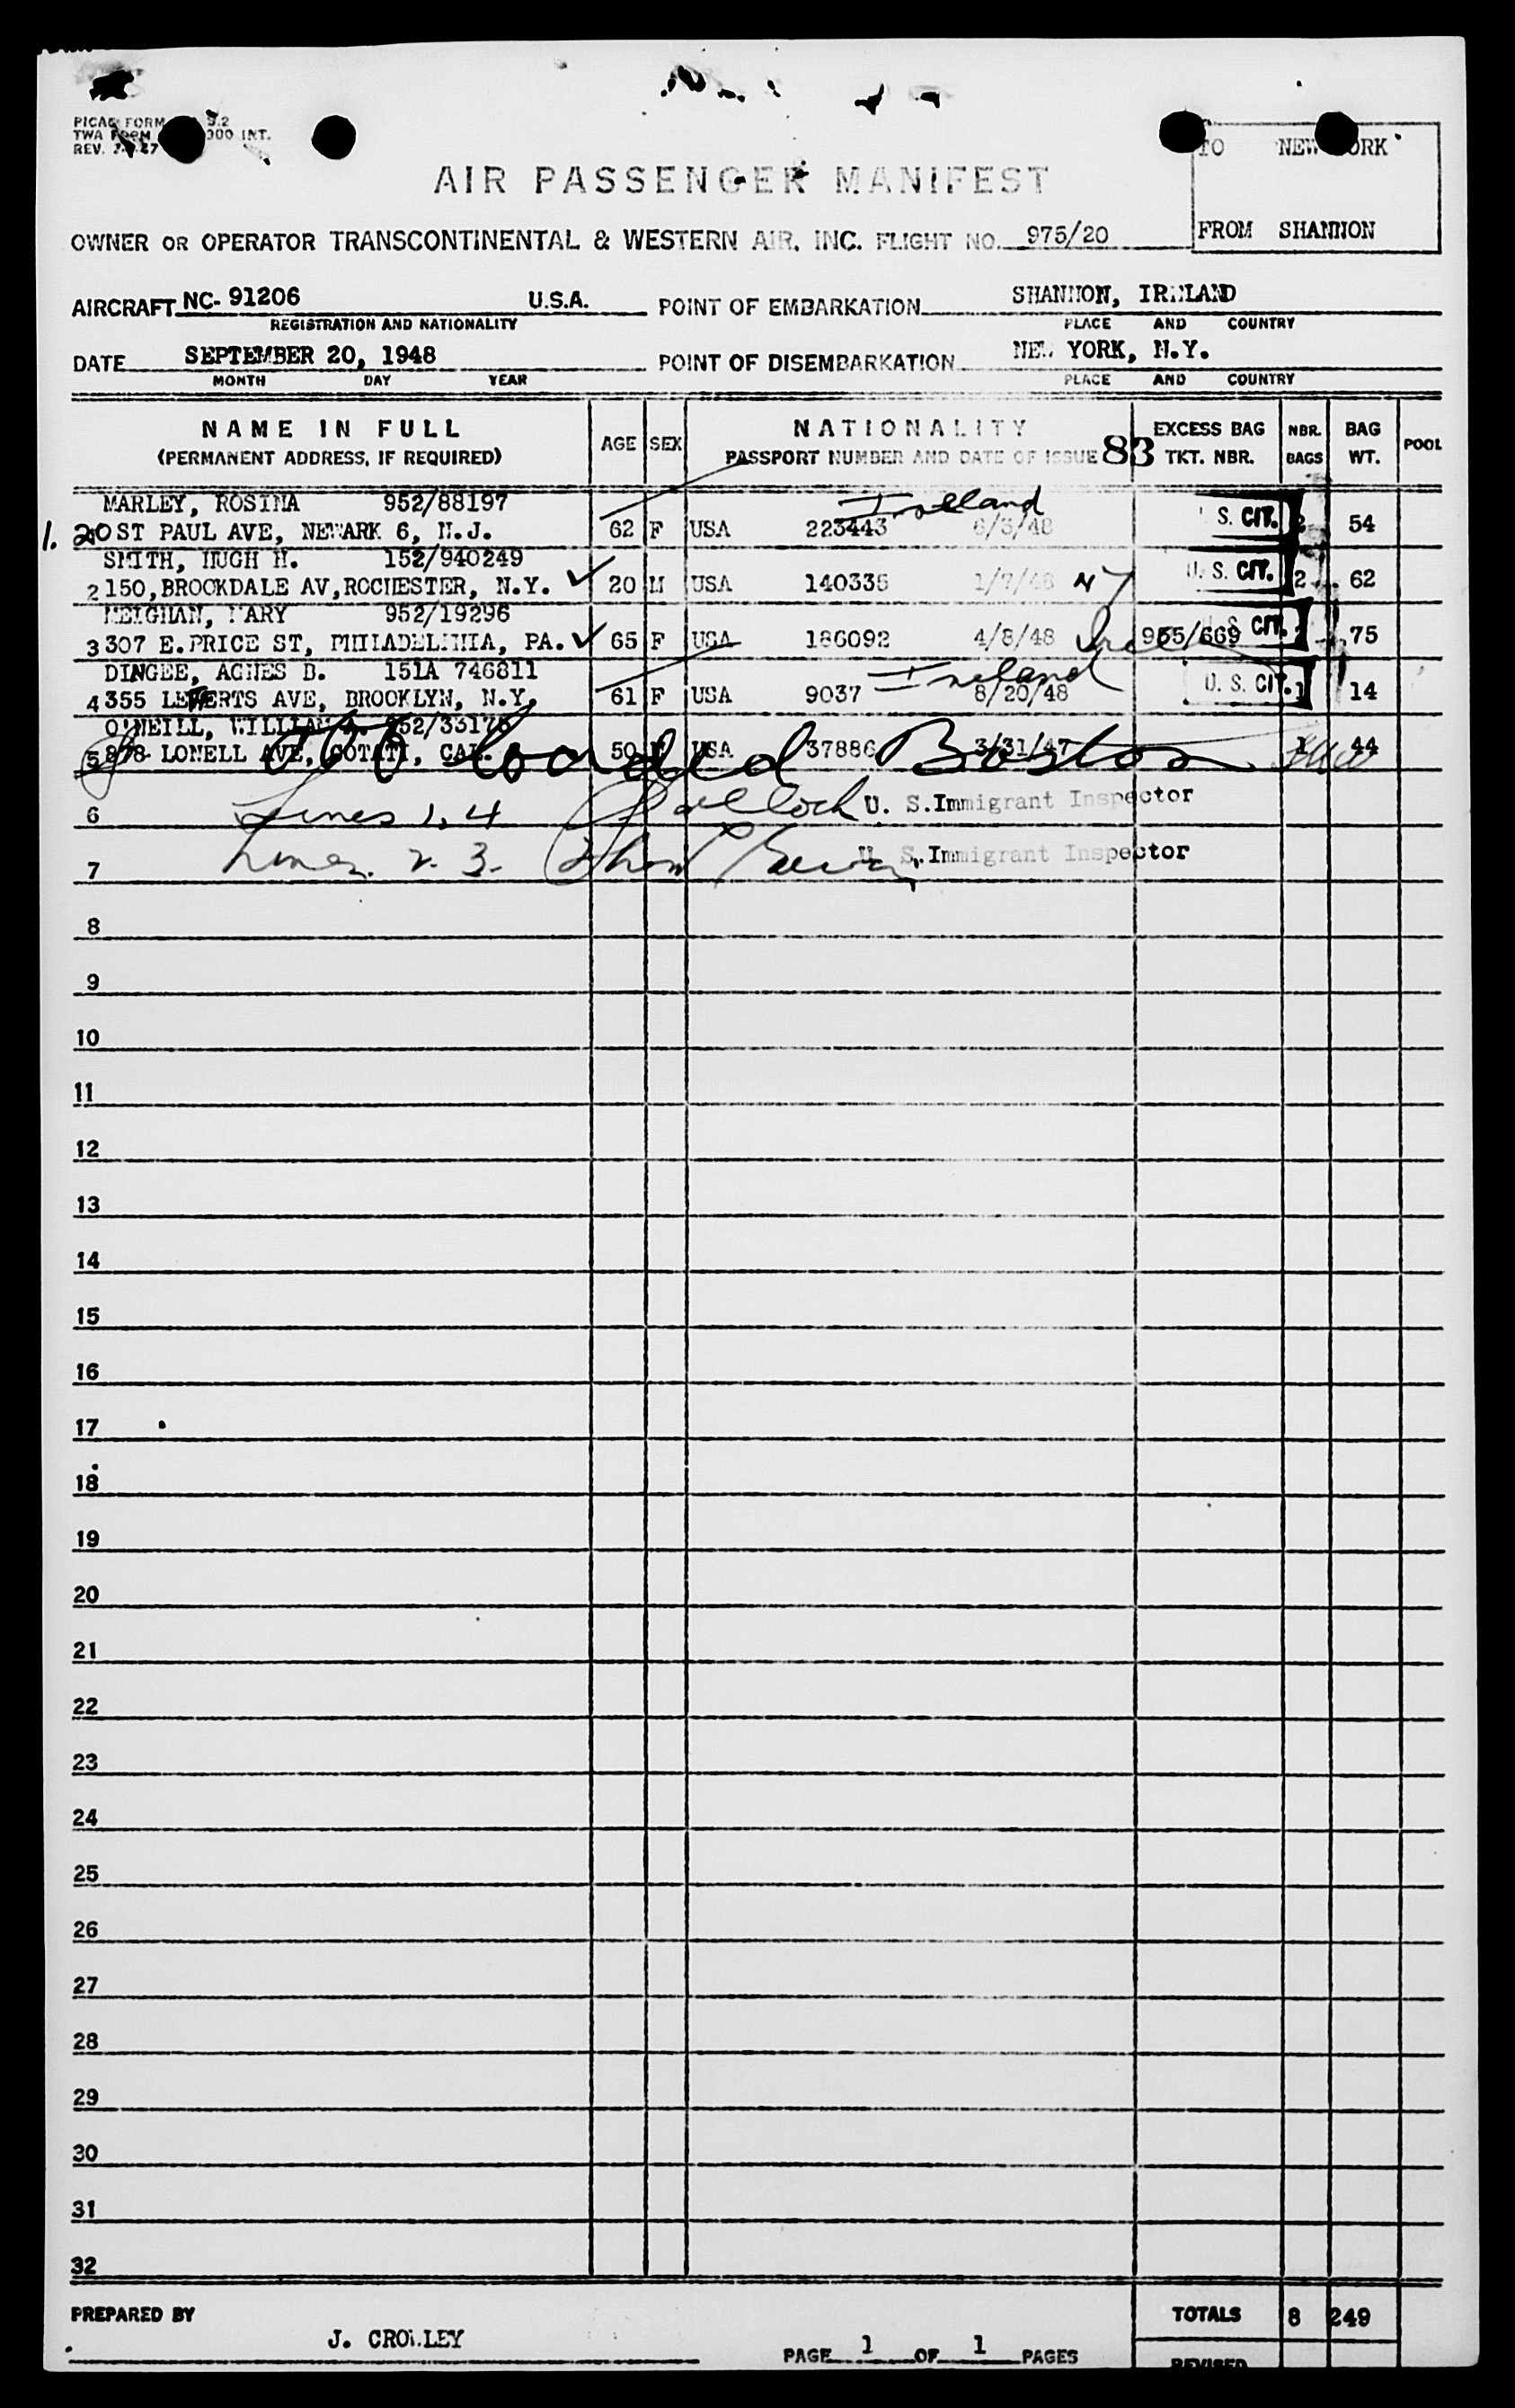 PICAO FORM
TWA FORM 000 INT.
REV.
TO NEW YORK
AIR PASSENGER MANIFEST
FROM SHANNON
OWNER OR OPERATOR TRANSCONTINENTAL & WESTERN AIR, INC. FLIGHT NO. 975/20
AIRCRAFT NC- 91206 U.S.A. POINT OF EMBARKATION SHANNON, IRELAND
REGISTRATION AND NATIONALITY PLACE AND COUNTRY
DATE SEPTEMBER 20, 1948 POINT OF DISEMBARKATION NEW YORK, N.Y.
MONTH DAY YEAR PLACE AND COUNTRY
NAME IN FULL AGE SEX NATIONALITY EXCESS BAG NBR. BAG POOL
(PERMANENT ADDRESS, IF REQUIRED) PASSPORT NUMBER AND DATE OF ISSUE 83 TKT. NBR. BAGS WT.
MARLEY, ROSINA 952/88197 Ireland
1. 20 ST PAUL AVE, NEWARK 6, N.J. 62 F USA 223443 6/3/48 U. S. CIT. 2 54
SMITH, HUGH H. 152/940249
2 150, BROOKDALE AV, ROCHESTER, N.Y. 20 M USA 140335 1/7/48 U. S. CIT. 2 62
MEIGHAN, MARY 952/19296
3 307 E. PRICE ST, PHILADELPHIA, PA. 65 F USA 186092 4/8/48 Irel 955/669 U. S. CIT. 2 75
DINGEE, AGNES B. 151A 746811 Ireland
4 355 LEFFERTS AVE, BROOKLYN, N.Y. 61 F USA 9037 8/20/48 U. S. CIT. 1 14
O'NEILL, WILLIAM 952/33176
5 878 LOWELL AVE, COTATI, CAL. 50 M USA 37886 3/31/47 1 44
Off loaded Boston
6 Lines 1, 4 U. S. Immigrant Inspector
7 Lines 2. 3. U. S. Immigrant Inspector
8
9
10
11
12
13
14
15
16
17
18
19
20
21
22
23
24
25
26
27
28
29
30
31
32
PREPARED BY J. CROWLEY
TOTALS 8 249
PAGE 1 OF 1 PAGES
REVISED